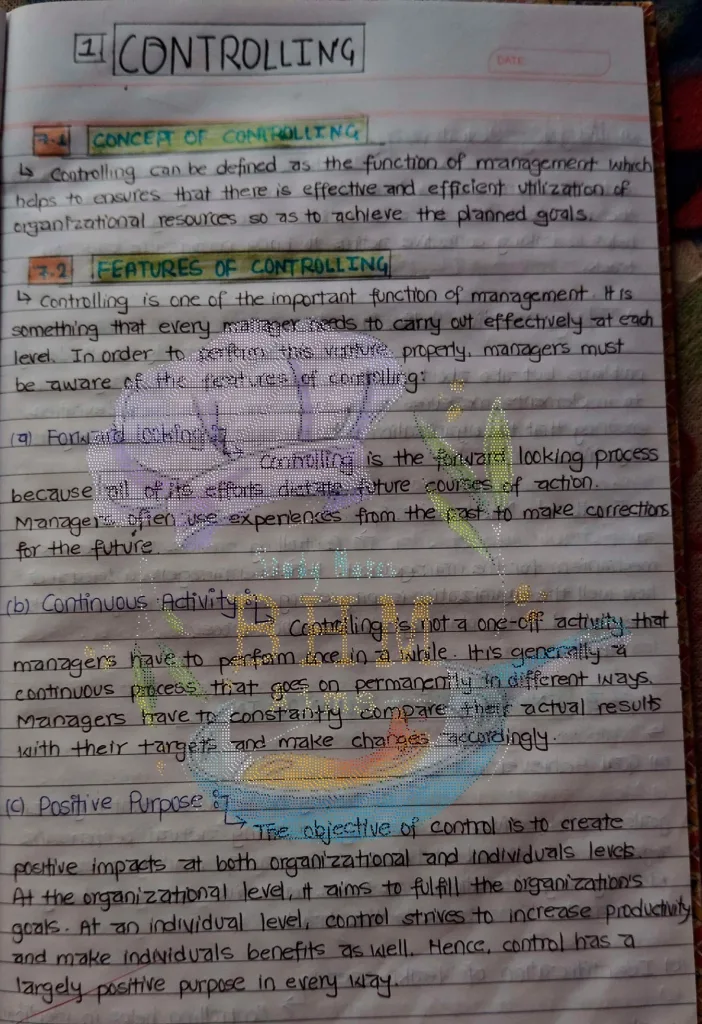 1 CONTROLLING
DATE
7.1 CONCEPT OF CONTROLLING
↳ Controlling can be defined as the function of management which
helps to ensures that there is effective and efficient utilization of
organizational resources so as to achieve the planned goals.
7.2 FEATURES OF CONTROLLING
↳ Controlling is one of the important function of management. It is
something that every manager needs to carry out effectively at each
level. In order to perform this venture properly, managers must
be aware of the features of controlling:
(a) Forward looking :
↳ Controlling is the forward looking process
because all of its efforts dictate future courses of action.
Managers often use experiences from the past to make corrections
for the future.
Study Notes
(b) Continuous Activity :
BHM
↳ Controlling is not a one-off activity that
managers have to perform once in a while. It is generally a
continuous process that goes on permanently in different ways.
Managers have to constantly compare their actual results
with their targets and make changes accordingly.
(c) Positive Purpose :
↳ The objective of control is to create
positive impacts at both organizational and individuals levels.
At the organizational level, it aims to fulfill the organization's
goals. At an individual level, control strives to increase productivity
and make individuals benefits as well. Hence, control has a
largely positive purpose in every way.